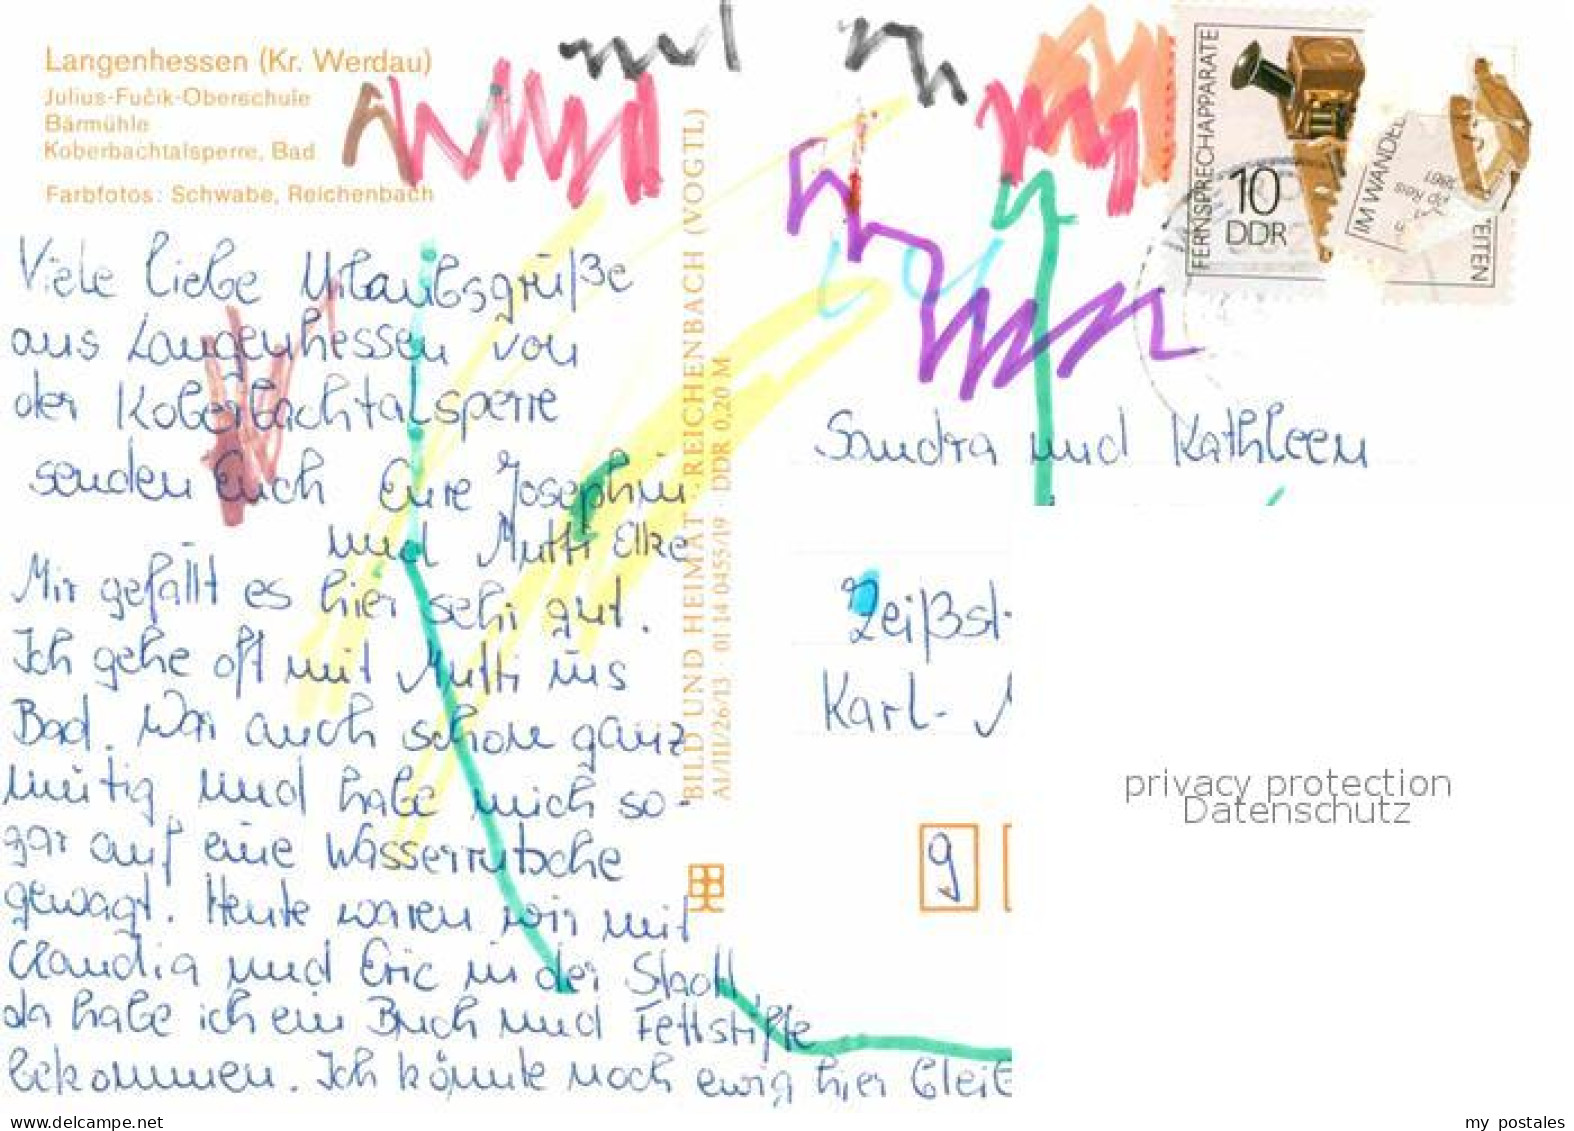 Langenhessen (Kr. Werdau)
Julius-Fučik-Oberschule
Bärmühle
Koberbachtalsperre, Bad
Farbfotos: Schwabe, Reichenbach
Viele liebe Urlaubsgrüße
aus Langenhessen von
der Koberbachtalsperre
senden Euch Eure Josephin
und Mutti Elke
Mir gefällt es hier sehr gut.
Ich gehe oft mit Mutti ins
Bad. War auch schon ganz
mutig und habe mich so-
gar auf eine Wasserrutsche
gewagt. Heute waren wir mit
Claudia und Eric in der Stadt
da habe ich ein Buch und Fettstifte
bekommen. Ich könnte noch ewig hier bleib
BILD UND HEIMAT · REICHENBACH (VOGTL)
A1/III/26/13 · 01 14 0455/19 · DDR 0,20 M
FERNSPRECHAPPARATE
10
DDR
IM WANDEL
1861
ZEITEN
Sandra und Kathleen
Zeißst
Karl-
9
privacy protection
Datenschutz
www.delcampe.net
my_postales